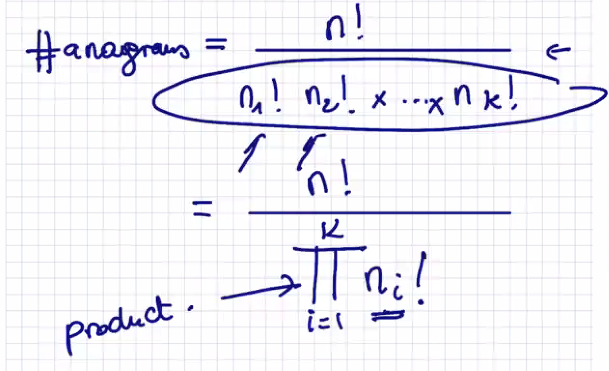 #anagrams = n! / (n₁! n₂! x ...x nₖ!) ←
= n! / ∏ᵢ₌₁ᴷ nᵢ!
product. →